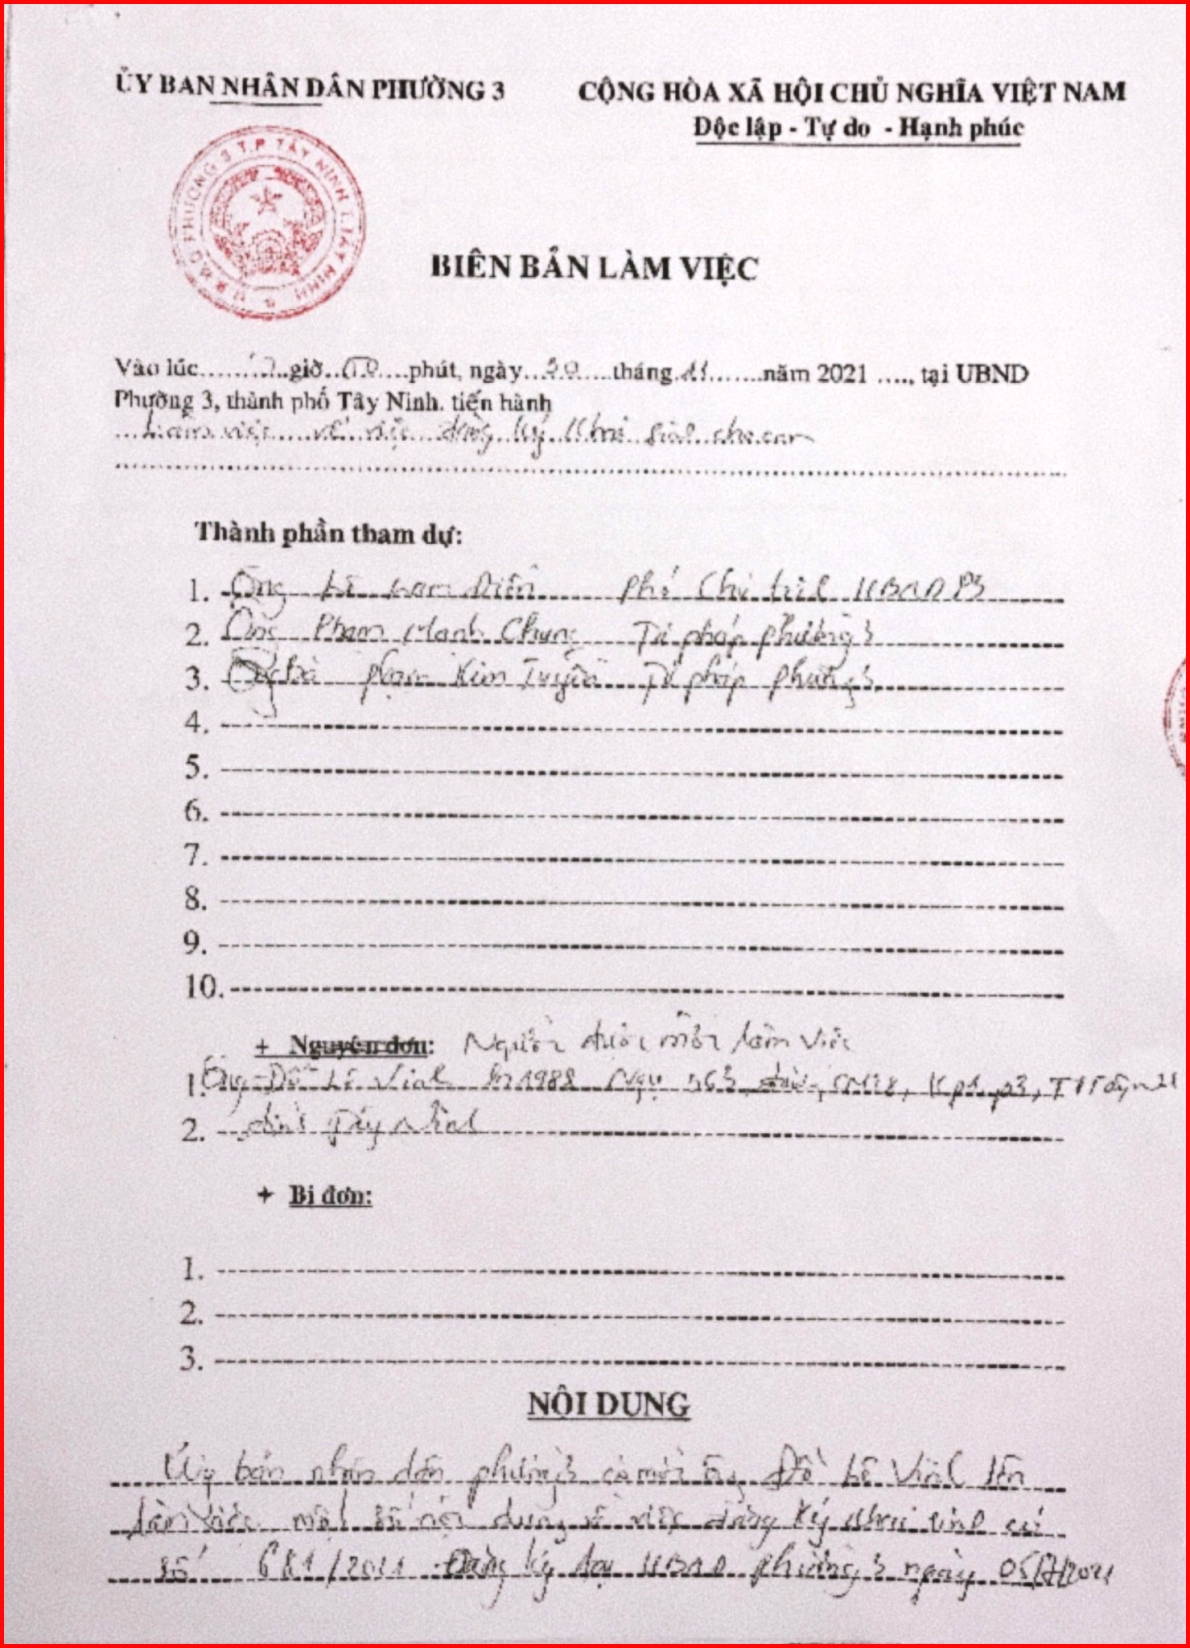 ỦY BAN NHÂN DÂN PHƯỜNG 3
CỘNG HÒA XÃ HỘI CHỦ NGHĨA VIỆT NAM
Độc lập - Tự do - Hạnh phúc
U.B.N.D PHƯỜNG 3 T.P TÂY NINH T.TÂY NINH
BIÊN BẢN LÀM VIỆC
Vào lúc giờ 00 phút, ngày 30 tháng 11 năm 2021 ...., tại UBND
Phường 3, thành phố Tây Ninh. tiến hành
Làm việc về việc đăng ký khai sinh cho con
Thành phần tham dự:
1. Ông Lê Diễn Phó Chủ tịch UBND P3
2. Ông Phạm Mạnh Chung Tư pháp phường 3
3. bà Phạm Kim Tuyền Tư pháp phường 3
4.
5.
6.
7.
8.
9.
10.
+ Nguyên đơn: Người được mời làm việc
1. Ông Đỗ Lê Vinh 1988 Ngụ 463, CMT8, Kp1, p3, TP Tây Ninh
2. tỉnh Tây Ninh
+ Bị đơn:
1.
2.
3.
NỘI DUNG
Ủy ban nhân dân phường 3 có mời ông Đỗ Lê Vinh lên
làm việc một số nội dung về việc đăng ký khai sinh có
số 681/2021 Đăng ký tại UBND phường 3 ngày